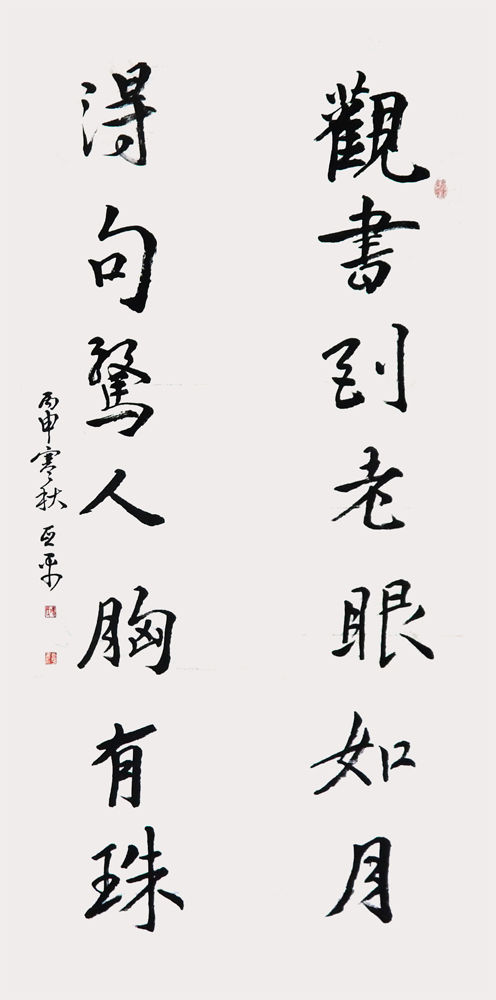 觀書到老眼如月
得句驚人胸有珠
丙申寒秋亚平